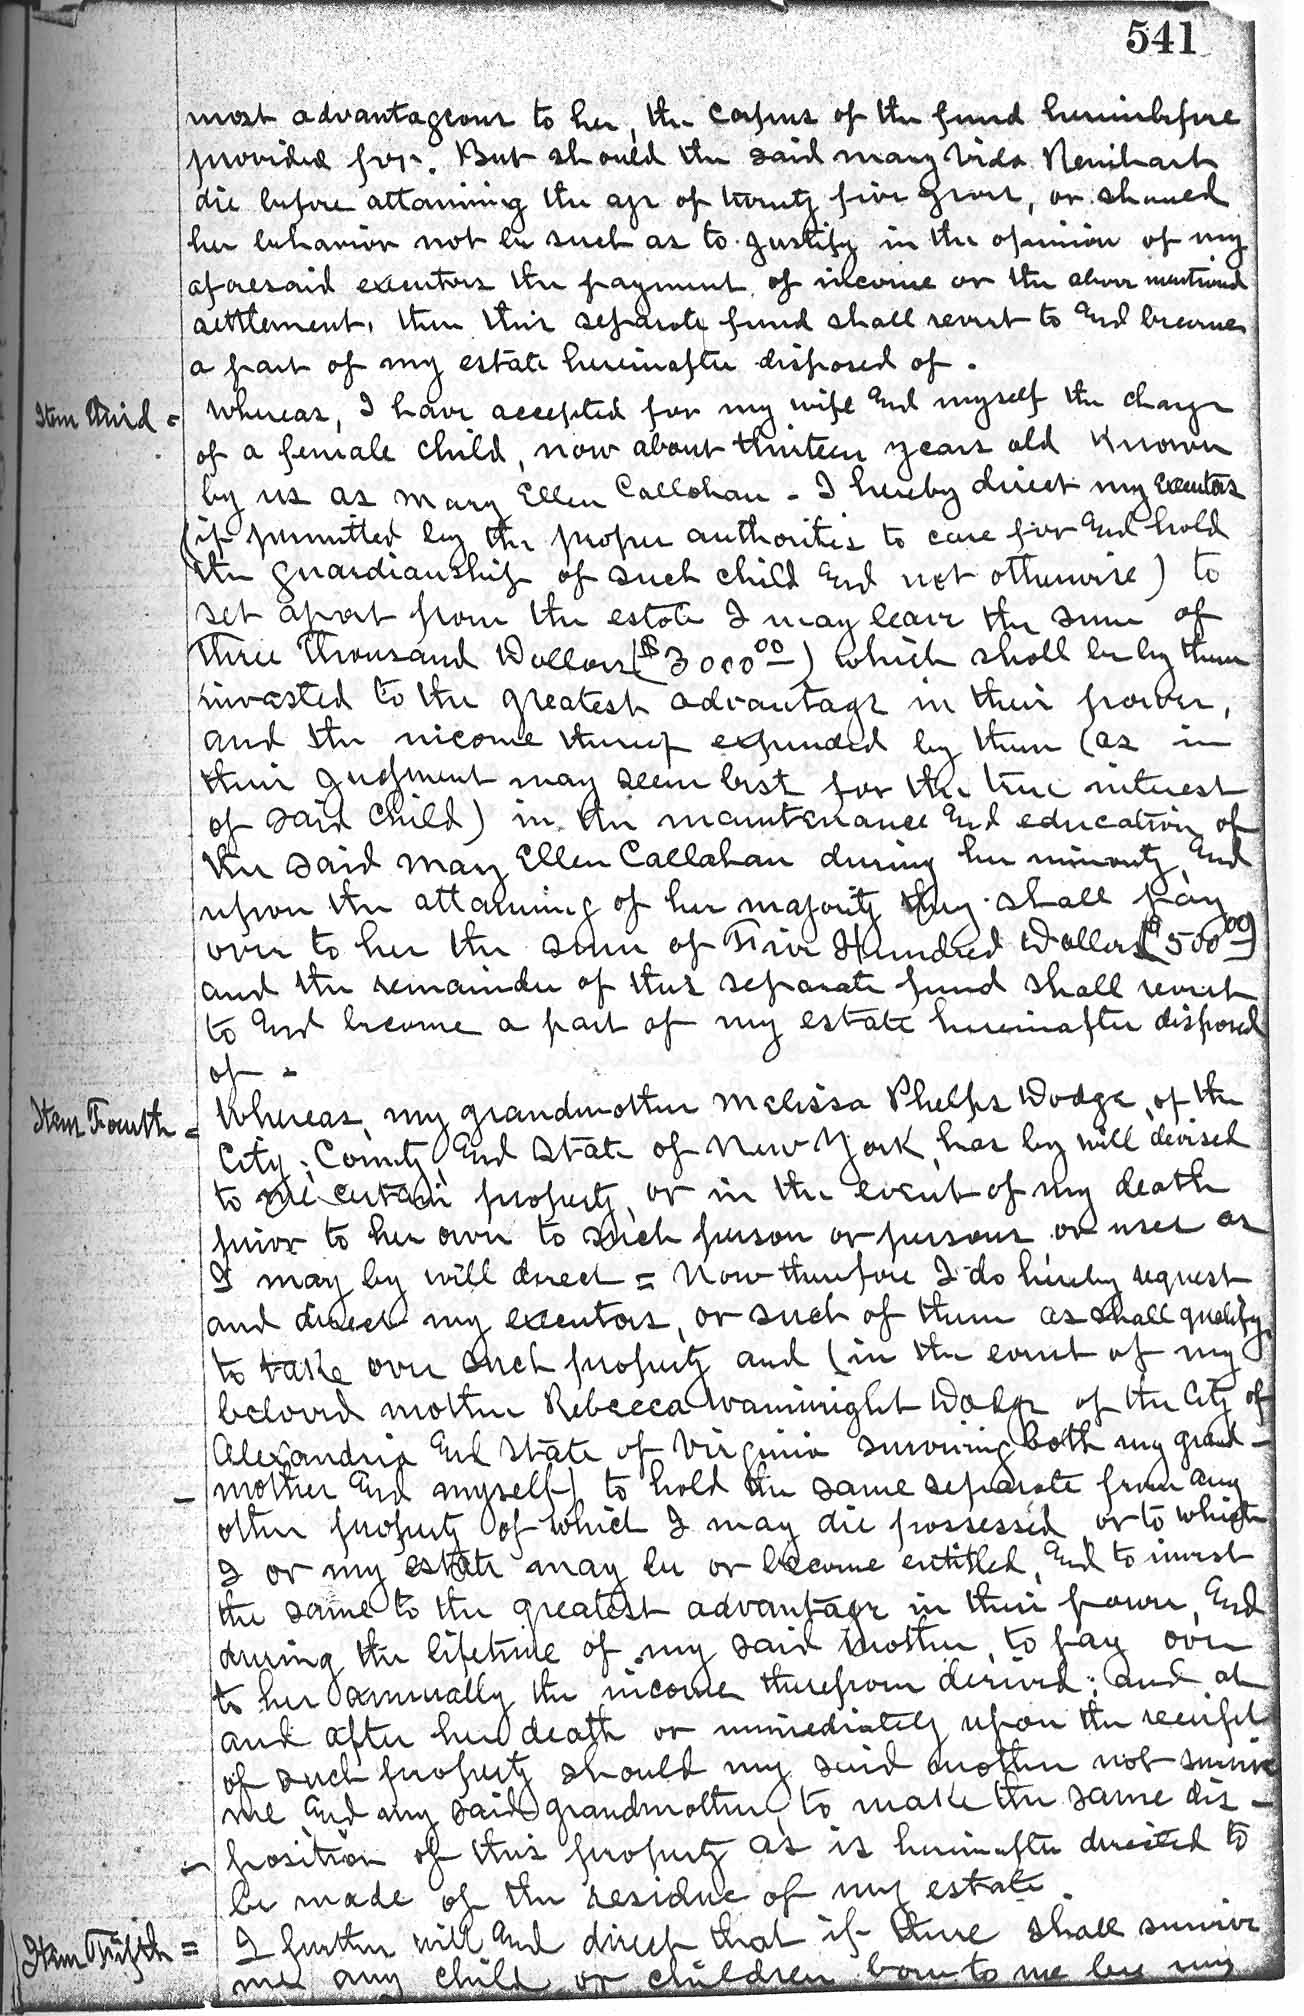 541
most advantageous to her, the corpus of the fund hereinbefore
provided for. But should the said Mary Vida Renihart
die before attaining the age of twenty five years, or should
her behavior not be such as to justify in the opinion of my
aforesaid executors the payment of income or the above mentioned
settlement, then this separate fund shall revert to and become
a part of my estate hereinafter disposed of.
Item third = Whereas, I have accepted for my wife and myself the charge
of a female child, now about thirteen years old known
by us as Mary Ellen Callahan - I hereby direct my executors
(if permitted by the proper authorities to care for and hold
the guardianship of such child and not otherwise) to
set apart from the estate I may leave the sum of
Three Thousand Dollars ($3000.00) which shall be by them
invested to the greatest advantage in their power,
and the income thereof expended by them (as in
their judgment may seem best for the true interest
of said child) in the maintenance and education of
the said Mary Ellen Callahan during her minority, and
upon the attaining of her majority they shall pay
over to her the sum of Five Hundred Dollars ($500.00)
and the remainder of this separate fund shall revert
to and become a part of my estate hereinafter disposed
of -
Item Fourth = Whereas, my grandmother Melissa Phelps Dodge, of the
City, County, and State of New York, has by will devised
to me certain property, or in the event of my death
prior to her own to such person or persons or uses as
I may by will direct = Now therefore I do hereby request
and direct my executors, or such of them as shall qualify,
to take over such property and (in the event of my
beloved mother Rebecca Wainwright Dodge of the City of
Alexandria and State of Virginia surviving both my grand-
mother and myself) to hold the same separate from any
other property of which I may die possessed, or to which
I or my estate may be or become entitled, and to invest
the same to the greatest advantage in their power, and
during the lifetime of my said mother, to pay over
to her annually the income therefrom derived; and at
and after her death or immediately upon the receipt
of such property should my said mother not survive
me and my said grandmother, to make the same dis-
position of this property as is hereinafter directed to
be made of the residue of my estate.
Item Fifth = I further will and direct that if there shall survive
me any child or children born to me by my